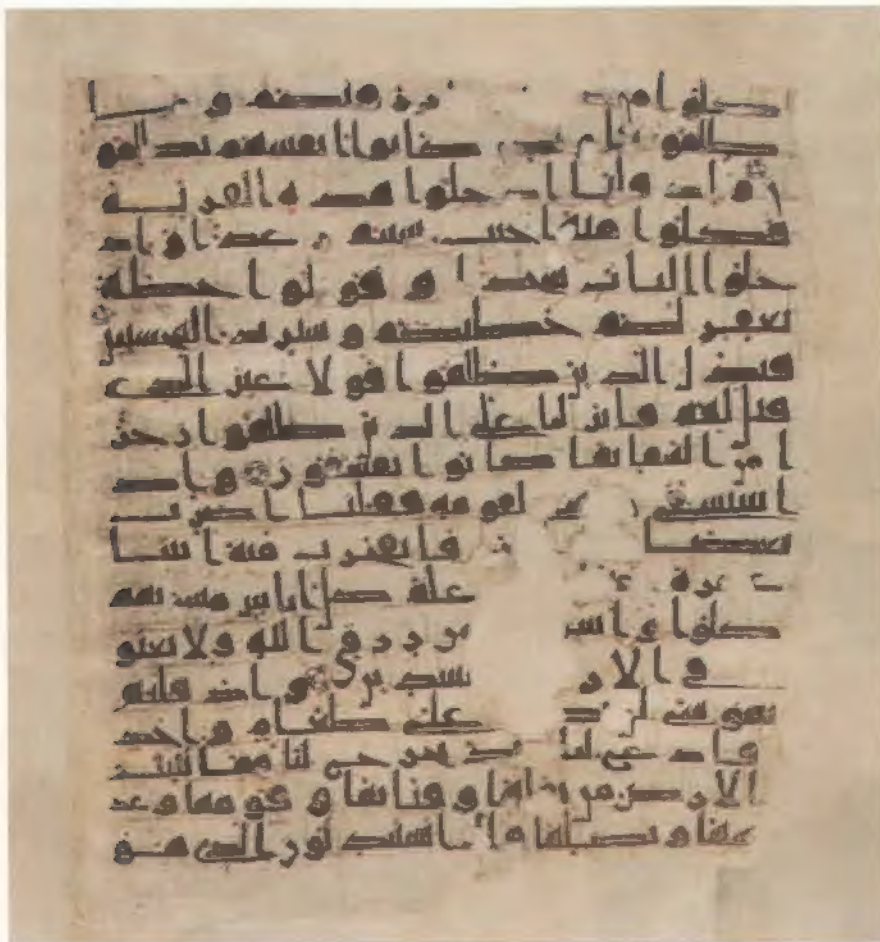 كلوا من رزقنكم وما
ظلمونا ولكن كانوا انفسهم يظلمو
ن واذ قلنا ادخلوا هذه القرية
فكلوا منها حيث شئتم رغدا واد
خلوا الباب سجدا وقولوا حطة
نغفر لكم خطيكم وسنزيد المحسنين
فبدل الذين ظلموا قولا غير الذي
قيل لهم فانزلنا على الذين ظلموا رجز
ا من السما بما كانوا يفسقون واذ
استسقى لقومه فقلنا اضرب
بعصا فانفجرت منه اثنتا
علم كل اناس مشربهم
كلوا واشر من رزق الله ولا تعثو
في الار سدين واذ قلتم
يموسى لن على طعام وحد
فادع لنا يخرج لنا مما تنبت
الارض من بقلها وقثائها وفومها وعد
سها وبصلها قال اتستبدلون الذي هو